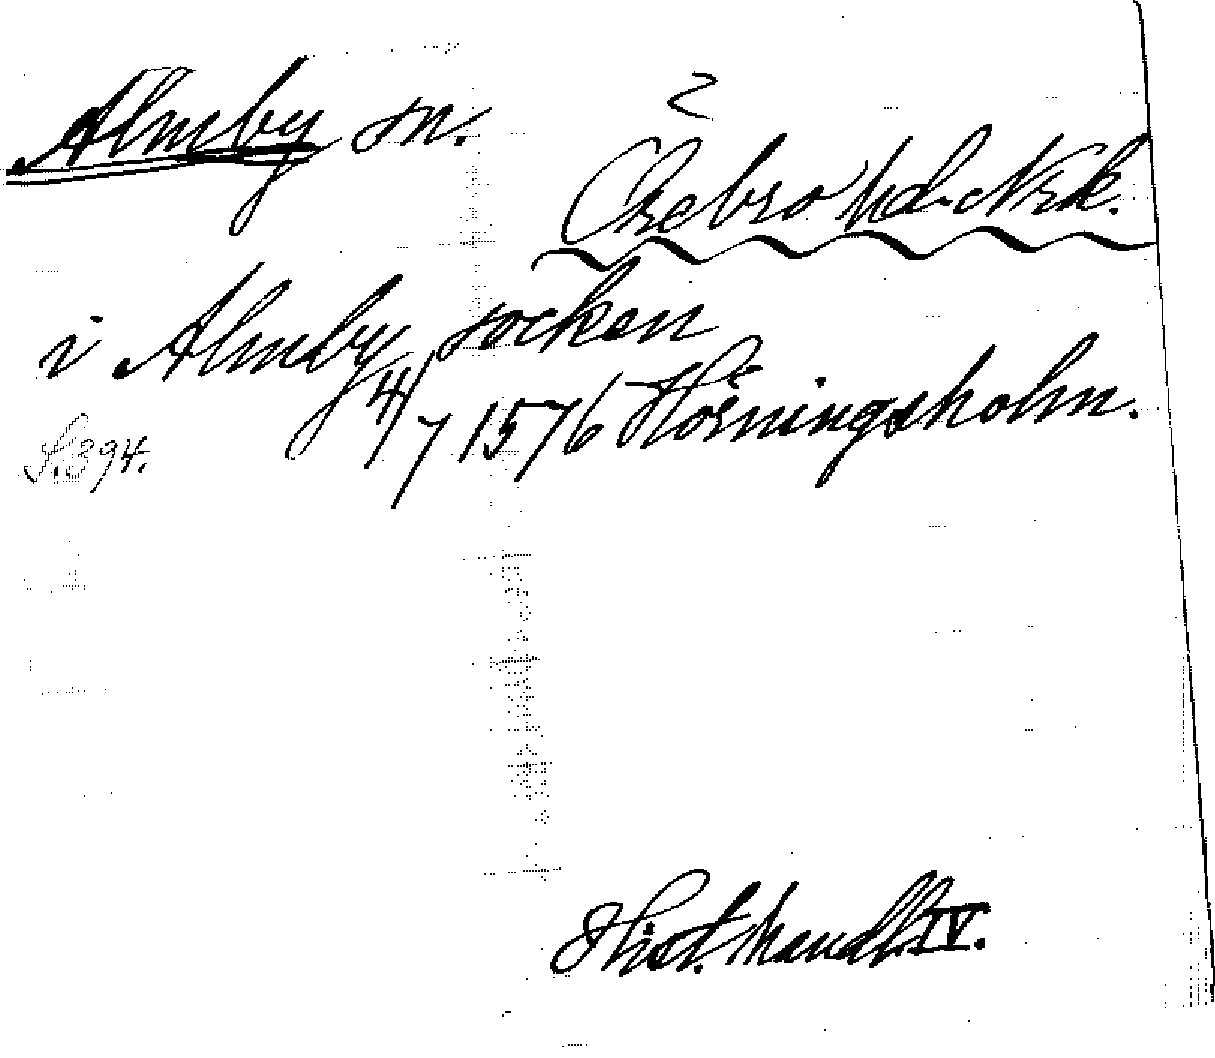 Almby sn.
Örebro hd. Nrk.
i Almby socken
4/7 1576 Hörningsholm.
S. 394.
Hist. handl. IV.